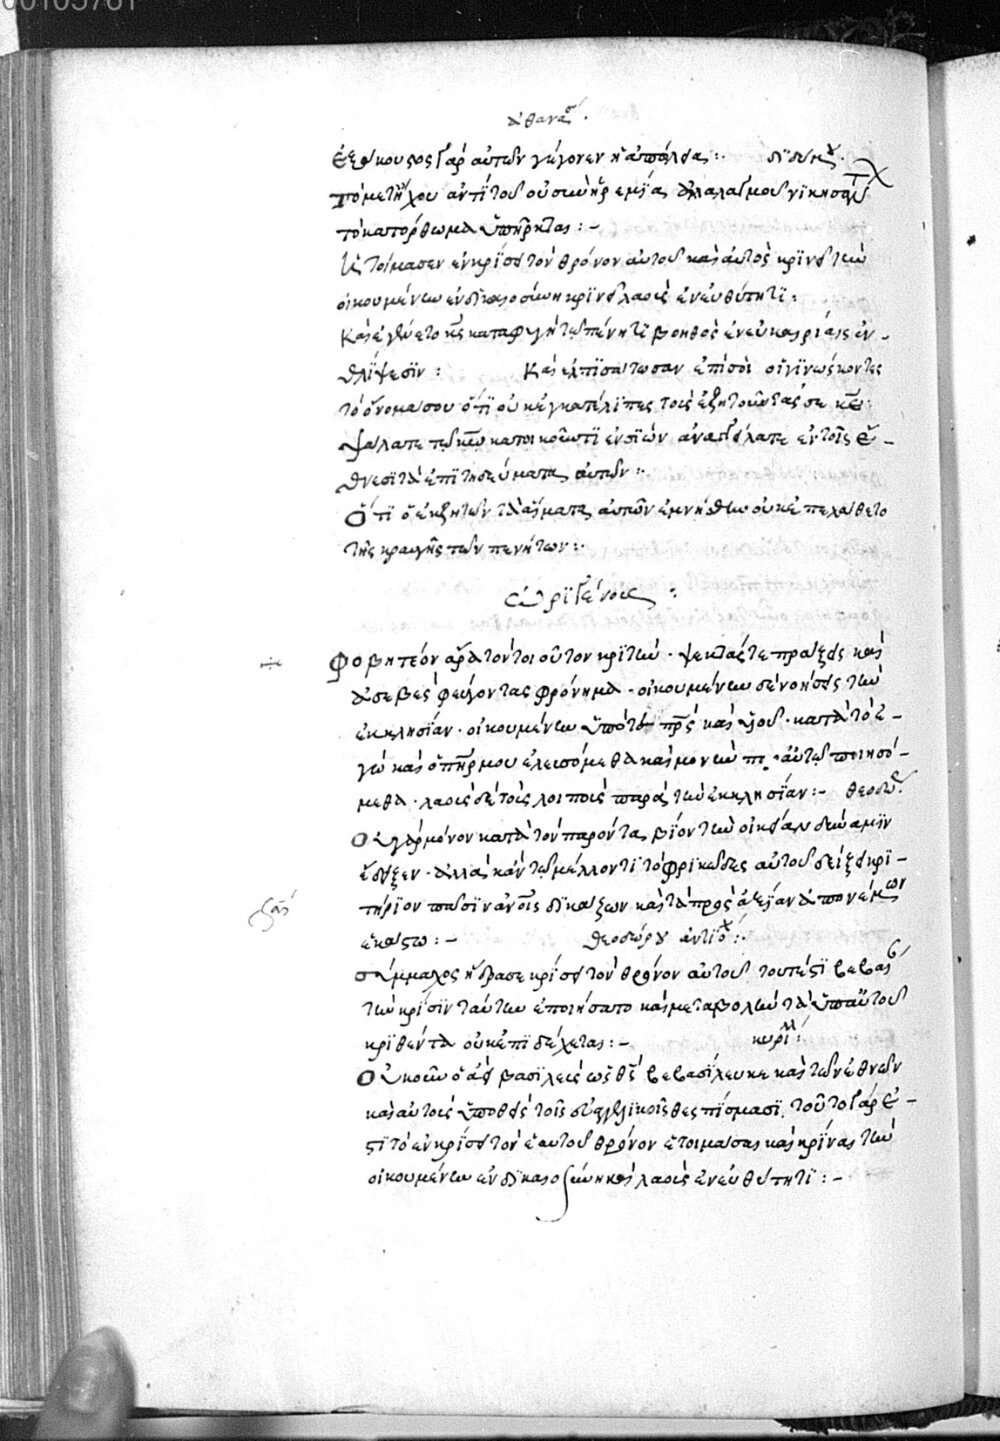 ἀθανασ
Ἐξάκουστος γὰρ αὐτῶν γέγονεν ἡ ἀπώλεια :· διδύμου
τὸ μετήχου ἀντὶ τοῦ οὐ σὺν ἠρεμίᾳ ἀλλ' ἀλαλαγμοῦ νικησα
τὸ κατόρθωμα ὑπῆρκται :-
Ἡτοίμασεν ἐν κρίσει τὸν θρόνον αὐτοῦ καὶ αὐτὸς κρινεῖ τὴν
οἰκουμένην ἐν δικαιοσύνῃ κρινεῖ λαοὺς ἐν εὐθύτητι :
Καὶ ἐγένετο κς καταφυγὴ τῷ πένητι βοηθὸς ἐν εὐκαιρίαις ἐν
θλίψεσιν : Καὶ ἐλπισάτωσαν ἐπὶ σοὶ οἱ γινώσκοντες
τὸ ὄνομά σου ὅτι οὐκ ἐγκατέλιπες τοὺς ἐκζητοῦντάς σε κε :
Ψάλατε τῷ κω κατοικοῦντι ἐν σιών ἀναγγείλατε ἐν τοῖς ἔ-
θνεσι τὰ ἐπιτηδεύματα αὐτοῦ :·
Ὅτι ὁ ἐκζητῶν τὰ αἵματα αὐτῶν ἐμνήσθη οὐκ ἐπελάθετο
τῆς κραυγῆς τῶν πενήτων :·
ὠριγένους :
Φοβητέον ἄρα τὸν τοιοῦτον κριτὴν · ψεκτάς τε πράξεις καὶ
ἀσεβὲς φεύγοντας φρόνημα · οἰκουμένην δὲ νοήσεις τὴν
ἐκκλησίαν · οἰκουμένην ὑπὸ τοῦ πρς καὶ υἱοῦ · κατὰ τὸ ἐ-
γὼ καὶ ὁ πηρ μου ἐλευσόμεθα καὶ μονὴν π αὐτῷ ποιησό-
μεθα · λαοὺς δὲ τοὺς λοιποὺς παρὰ τὴν ἐκκλησίαν :- θεοδω
Οὐ γὰρ μόνον κατὰ τὸν παρόντα βίον τὴν οἰκείαν δύναμιν
ἔδειξεν · ἀλλὰ κἀν τῷ μέλλοντι τὸ φρικῶδες αὐτοῦ δείξει κρι-
τήριον πᾶσιν ἀνοις δικάζων καὶ τὰ πρὸς ἀξίαν ἀπονέμων
ἑκάστῳ :- θεοδώρου ἀντιο :·
σύμμαχος ἥδρασε κρίσει τὸν θρόνον αὐτοῦ τουτέστι βεβαί
τὴν κρίσιν ταύτην ἐποιήσατο καὶ μεταβολὴν τὰ ὑπ' αὐτοῦ
κριθέντα οὐκ ἐπιδέχεται :- κυριλλ :
Οὐκοῦν ὁ ἀεὶ βασιλεὺς ὡς θς βεβασίλευκε καὶ τῶν ἐθνῶν
καὶ αὐτοὺς ὑποθεὶς τοῖς εὐαγγελικοῖς θεσπίσμασι τοῦτο γάρ ἐ-
στι τὸ ἐν κρίσει τὸν ἑαυτοῦ θρόνον ἑτοιμάσαι καὶ κρῖναι τὴν
οἰκουμένην ἐν δικαιοσύνῃ καὶ λαοὺς ἐν εὐθύτητι :-